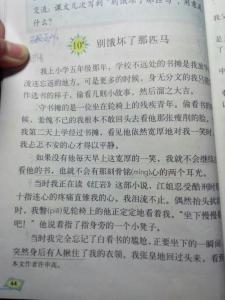 交流：课文几次写到“别饿坏了那匹
什么？
10 别饿坏了那匹马
我上小学五年级那年，学校不远处的书摊是我放学
流连忘返的地方。可是更多的时候，身无分文的我只
作选书的样子，偷看几则小故事，然后溜之大吉。
守书摊的是一位坐在轮椅上的残疾青年。偷看书的
候，羞愧不已的我根本不敢回头去看他那张瘦削的脸。
我第二天上学经过书摊，看见他依然宽厚地对我一笑时，
我忐忑不安的心才得以平静。
如果没有他每天早上这宽厚的一笑，我就不会继续
看他的书，也就不会有那刻骨铭(míng)心的两个耳光。
当时我正在读《红岩》这部小说，江姐忍受酷刑
十指连心的疼痛直锥我的心。我泪流不止。偶然抬头
时，我瞥(piē)见轮椅上的他正定定地看着我。“坐下慢慢
吧！”他说着指了指身旁的一个小凳子。
当时我完全忘记了白看书的尴尬，正要坐下的一瞬间
突然身后有人揪住了我的衣领。我张皇地回过头来，看
本文作者许申高。
44